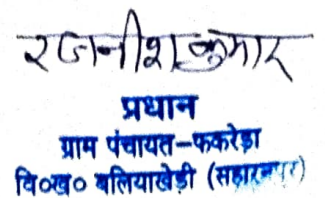 रजनीश कुमार
प्रधान
ग्राम पंचायत-फकरेड़ा
वि०ख० बलियाखेड़ी (सहारनपुर)